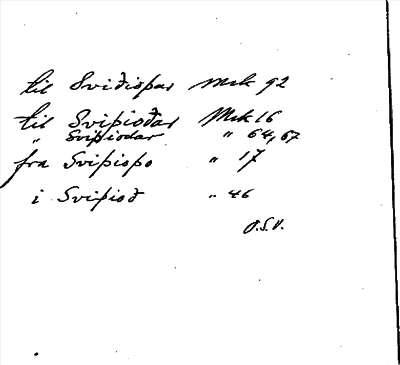 til Sviðisþar Msk 92
til Sviþioðar Msk 16
„ Sviþiodar „ 64, 67
fra Sviþiopo „ 17
i Sviþioð „ 46
o.s.v.